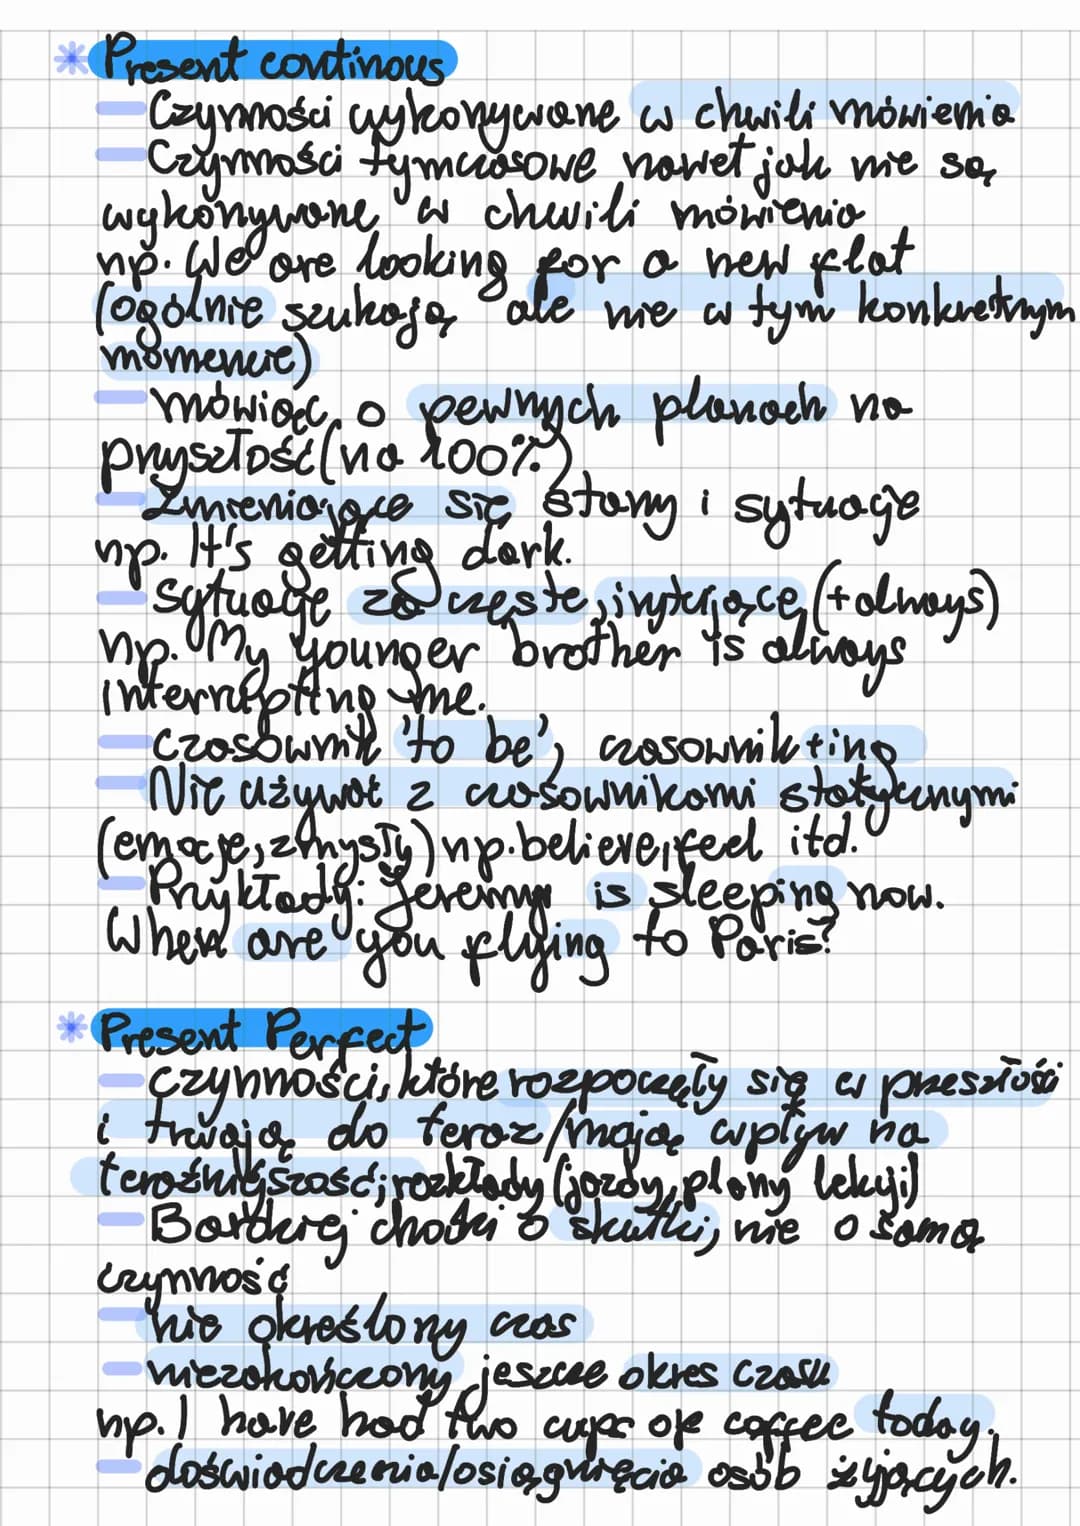 Present continous
Czynności wykonywane w chwili mówienia
Czynności tymczasowe nawet jak nie są
wykonywane w chwili mówienia
np. We are looking for a new flat
(ogólnie szukają ale nie w tym konkretnym
momencie)
mówiąc o pewnych planach na
przyszłość (na 100%)
Zmieniające się stany i sytuacje
np. It's getting dark.
Sytuacje za częste, irytujące (+ always)
np. My younger brother is always
interrupting me.
czasownik 'to be', czasownik + ing
Nie używać z czasownikami statycznymi
(emocje, zmysły) np. believe, feel itd.
Przykłady: Jeremy is sleeping now.
When are you flying to Paris?
Present Perfect
czynności, które rozpoczęły się w przeszłości
i trwają do teraz/mają wpływ na
teraźniejszość; rozkłady (jazdy, plany lekcji)
Bardziej chodzi o skutki, nie o samą
czynność
nie określony czas
niezakończony jeszcze okres czasu
np. I have had two cups of coffee today.
doświadczenia/osiągnięcia osób żyjących.